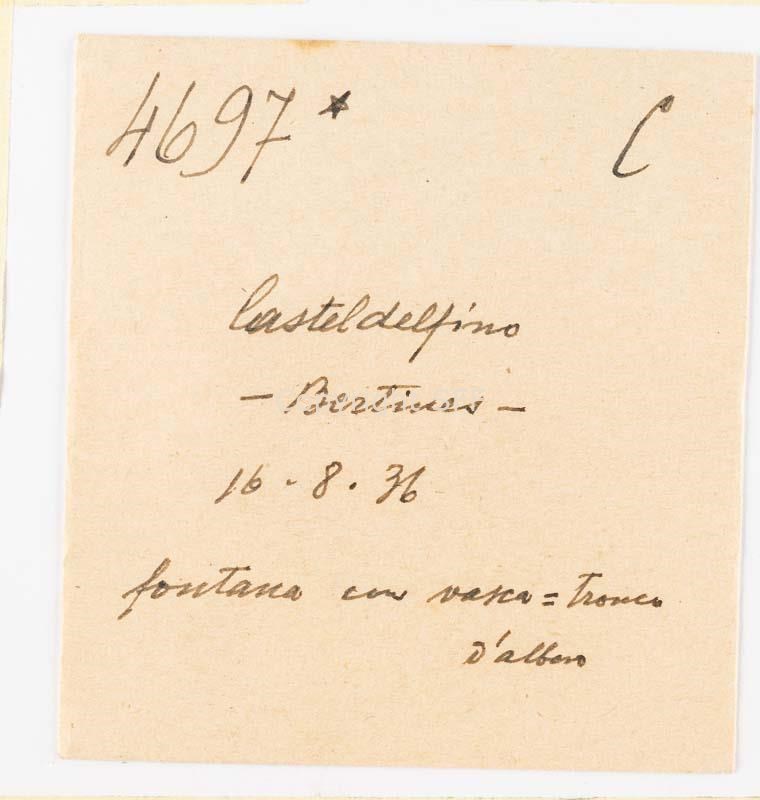 4697* C
Casteldelfino
- Bertines -
16 - 8 . 36
fontana con vasca = tronco
d'albero